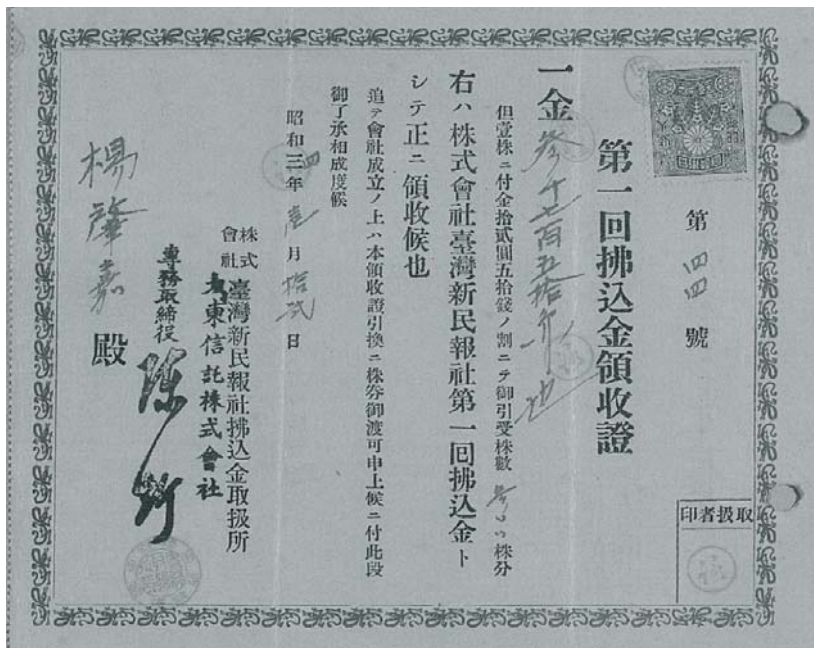 第四四號
第一回拂込金領收證
一金參千七百五拾圓也
但壹株ニ付金拾貳圓五拾錢ノ割ニテ御引受株數 參〇〇株分
右ハ株式會社臺灣新民報社第一回拂込金ト
シテ正ニ領收候也
追テ會社成立ノ上ハ本領收證引換ニ株券御渡可申上候ニ付此段
御了承相成度候
昭和四年壹月拾貳日
株式會社臺灣新民報社拂込金取扱所
大東信託株式會社
專務取締役 陳炘
楊肇嘉殿
取扱者印